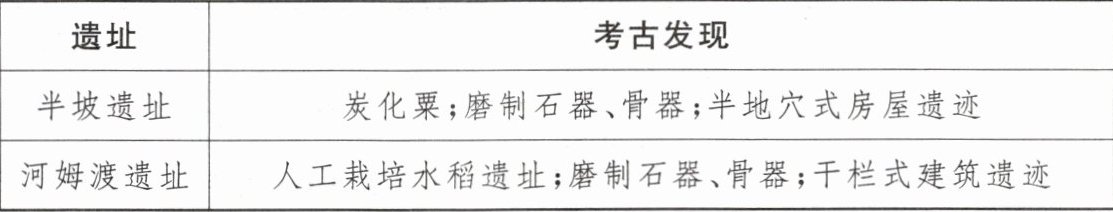 遗址 考古发现
半坡遗址 炭化粟;磨制石器、骨器;半地穴式房屋遗迹
河姆渡遗址 人工栽培水稻遗址;磨制石器、骨器;干栏式建筑遗迹